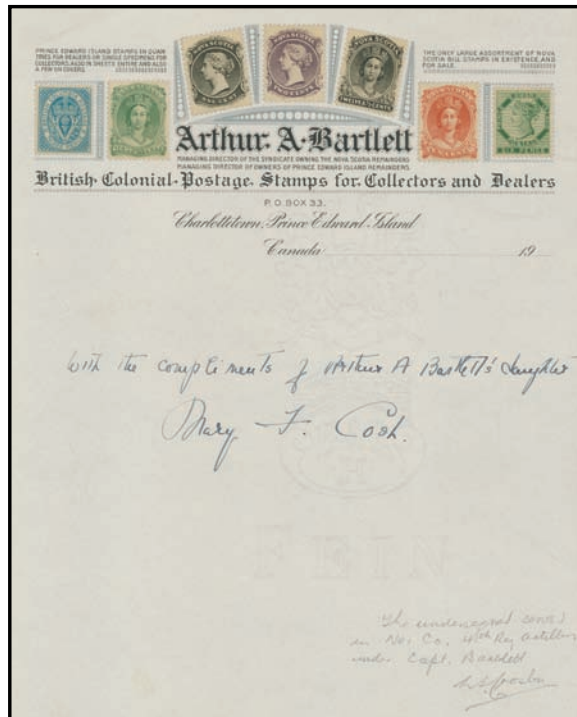 PRINCE EDWARD ISLAND STAMPS IN QUAN-
TITIES FOR DEALERS OR SINGLE SPECIMENS FOR
COLLECTORS, ALSO IN SHEETS ENTIRE AND ALSO
A FEW ON COVERS.
THE ONLY LARGE ASSORTMENT OF NOVA
SCOTIA BILL STAMPS IN EXISTENCE, AND
FOR SALE.
NOVA SCOTIA
ONE CENT
NOVA SCOTIA
TWO CENTS
NOVA SCOTIA
SIX PENCE
Arthur. A. Bartlett
MANAGING DIRECTOR OF THE SYNDICATE OWNING THE NOVA SCOTIA REMAINDERS
MANAGING DIRECTOR OF OWNERS OF PRINCE EDWARD ISLAND REMAINDERS
British-Colonial-Postage. Stamps for. Collectors and Dealers
P.O. BOX 33.
Charlottetown, Prince Edward Island
Canada 19
With the compliments of Arthur A Bartlett's daughter
Mary F. Cosh.
FEIN
The undersigned served
in No. 1 Co. 4th Reg Artillery
under Capt. Bartlett